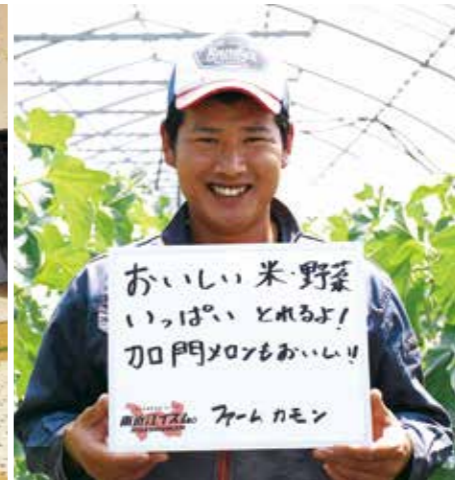 おいしい 米・野菜
いっぱい とれるよ!
加門メロンもおいしい!!
南近江イズム。 ファーム カモン